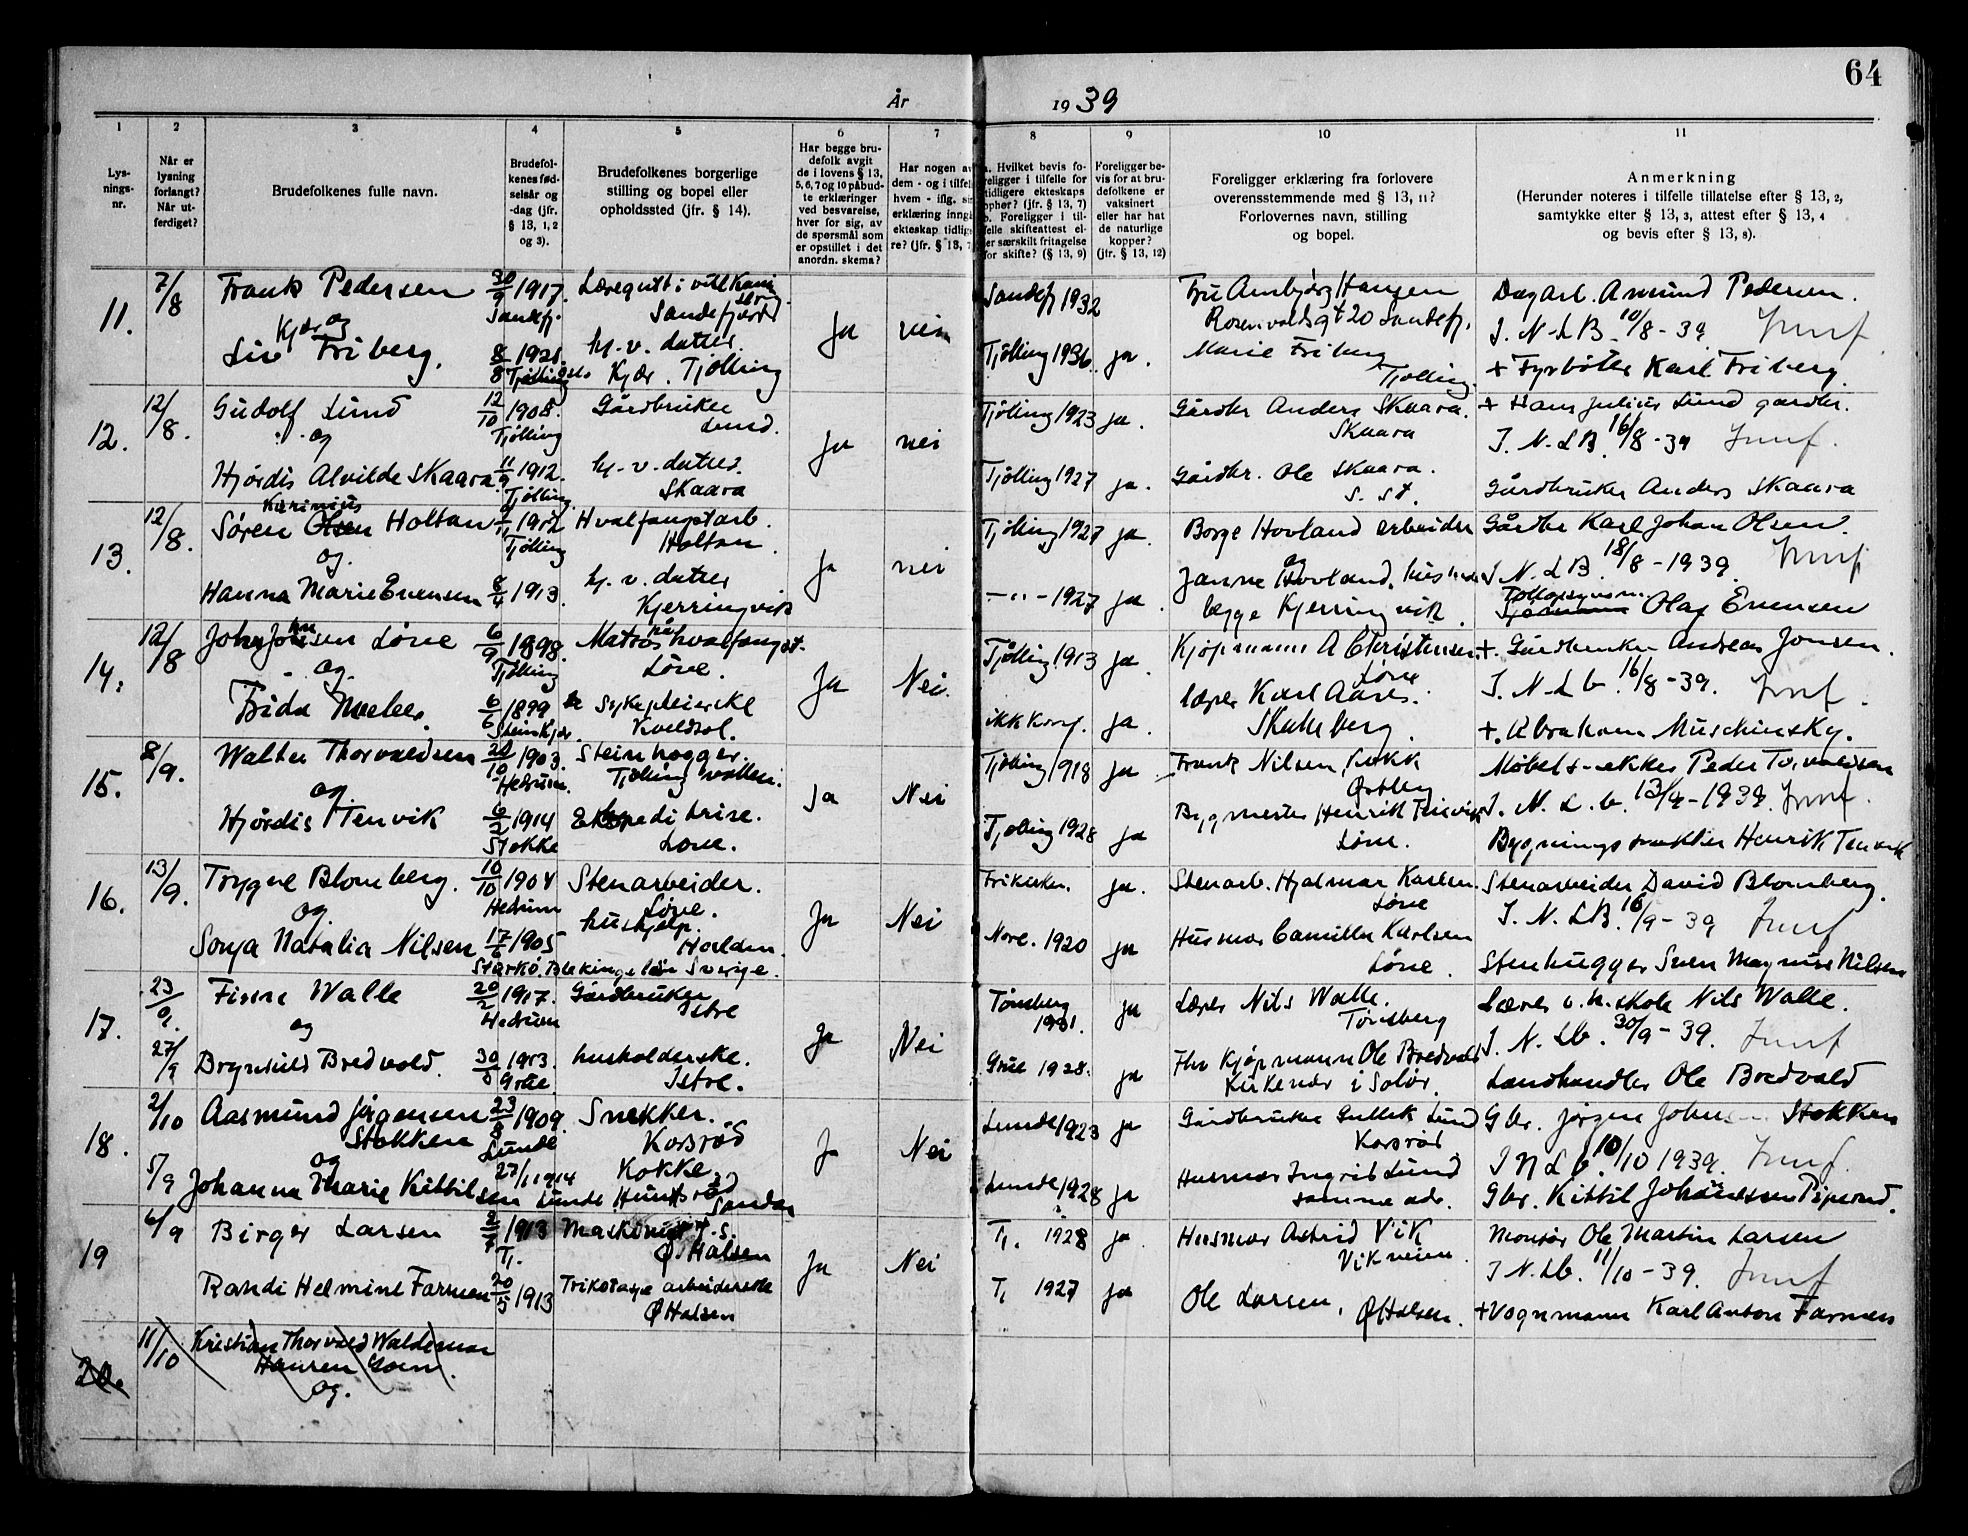 64
År 1939
1 2 3 4 5 6 7 8 9 10 11
Lysningsnr.
Når er lysning forlangt? Når utferdiget?
Brudefolkenes fulle navn.
Brudefolkenes fødselsår og -dag (jfr. § 13, 1, 2 og 3).
Brudefolkenes borgerlige stilling og bopel eller opholdssted (jfr. § 14).
Har begge brudefolk avgit de i lovens § 13, 5, 6, 7 og 10 påbudte erklæringer ved besvarelse, hver for sig, av de spørsmål som er opstillet i det anordn. skema?
Har nogen av dem - og i tilfelle hvem - iflg. sin erklæring inngå ekteskap tidligere? (jfr. § 13, 7
a. Hvilket bevis foreligger i tilfelle for tidligere ekteskaps ophør? (jfr. § 13, 7)
b. Foreligger i tilfelle skifteattest eller særskilt fritagelse for skifte? (§ 13, 9)
Foreligger bevis for at brudefolkene er vaksinert eller har hat de naturlige kopper? (jfr. § 13, 12)
Foreligger erklæring fra forlovere overensstemmende med § 13, 11? Forlovernes navn, stilling og bopel.
Anmerkning
(Herunder noteres i tilfelle tillatelse efter § 13, 2, samtykke efter § 13, 3, attest efter § 13, 4 og bevis efter § 13, 8).
11. 7/8 Frank Pedersen 30/9 1917. Sandefj. Læregutt i Sandefjord Ja nei Sandefj 1932 Fru Ambjørg Hansen Rosenvoldsgt 20 Sandefj. Dagarb. Amund Pedersen.
og
I. N. L B. 10/8 - 39
Liv Kjær Friberg. 8/8 1921. Tjølling h. v. datter. Kjær. Tjølling Tjølling 1936. ja. Marie Friberg Tjølling. + Fyrbøter Karl Friberg.
12. 12/8. Gudolf Lund 12/10 1908. Tjølling Gårdbruker Lund. Ja nei Tjølling 1923 ja. Gårdbr Anders Skaara. Skaara + Hans Julius Lund gardbr.
og
I. N. L B. 16/8 - 39
Hjørdis Alvilde Skaara. 11/9 1912. Tjølling h. v. datter. Skaara Tjølling 1927 ja. Gårdbr. Ole Skaara. s. st. Gårdbruker Anders Skaara
13. 12/8. Søren Karinius Olsen Holtan 1902 Tjølling Hvalfangstarb. Holtan. Ja nei Tjølling 1927 ja. Borge Hovland arbeider Gårdbr Karl Johan Olsen.
og.
I. N. L B. 18/8 - 1939.
Hanna Marie Evensen 8/4 1913. h. v. datter Kjerringvik - " - 1927 ja. og Janne Hovland, begge Kjerringvik. Olaf Evensen
14. 12/8 Johnsen Løne 6/9 1898. Tjølling Matros på hvalfangst. Løne. Ja Nei. Tjølling 1913 ja. Kjøpmann A Christensen. Løve +. Gårdbruker Andreas Jonsen.
og.
I. N. L b. 16/8 - 39.
Frida 6/6 1899 Steinkjer. Sykepleierske Kveldsol. ikk konf. ja. lærer Karl Aares. Skalleberg. +. Abraham Muschinsky.
15. 8/9. Walter Thorvaldsen 1903. Hedrum. Steinhogger. Tjølling Ja Nei Tjølling 1918 ja Frank Nilsen, kokk Østby Peder Torvaldsen
og.
I. N. L. b. 13/9 - 1939.
Hjørdis Tenvik 6/2 1914 Stokke Ekspeditrise. Løve. Tjølling 1928 ja Bygmester Henrik Tenvik Løve. Henrik Tenvik
16. 13/9. Trygve Blomberg. 10/10 1904 Hedrum Stenarbeider. Løve. Ja Nei Frikirken. ja. Stenarb. Hjalmar Karlsen. Løve Stenarbeider David Blomberg.
og.
I. N. L B. 16/9 - 39
Sonja Natalia Nilsen 17/6 1905 Starkö. Blekinge län Sverige. hushjelp. Halden. Nore. 1920 ja Husmor Camilla Karlsen Løve. Stenhugger Sven Magnus Nilsen
17. 23/9. Finn Walle 20/2 1917. Hedrum Gårdbruker Istre Ja Nei Tønsberg 1931. ja Lærer Nils Walle. Tønsberg Lærer v. h. skole Nils Walle.
og
I. N. Lb. 30/9 - 39.
27/9 Brynhild Bredvold. 30/8 1913. Grue husholderske. Istre. Grue 1928. ja Fhv Kjøpmann Ole Bredvold Kirkenær i Solør. Landhandler Ole Bredvold
18. 2/10 Aasmund Jørgensen Stokken 23/8 1909. Lunde Snekker. Korsrød Ja Nei Lunde 1923 ja Gårdbruker Gullik Lund Korsrød Gbr. Jørgen Stokken
og
I N L b. 10/10 1939.
5/9 Johanna Marie Kittilsen 27/1 1914 Lunde Kokke. Sandar Lunde 1928 ja Husmor Ingrid Lund samme adr. Gbr. Kittil Johannessen Piperud.
19 6/9 Birger Larsen 1913 Tj. Ø. Halsen Ja Nei Tj. 1928 ja. Husmor Astrid Vik Vikveien. Montør Ole Martin Larsen
I N. Lb. 11/10 - 39.
Randi Helmine Farmen 20/5 1913 Trikotasje arbeiderske Ø Halsen Tj 1927 ja Ole Larsen, Ø Halsen. + Vognmann Karl Anton Farmen
20. 11/10 Kristian Thorvald Waldemar Hansen
og.